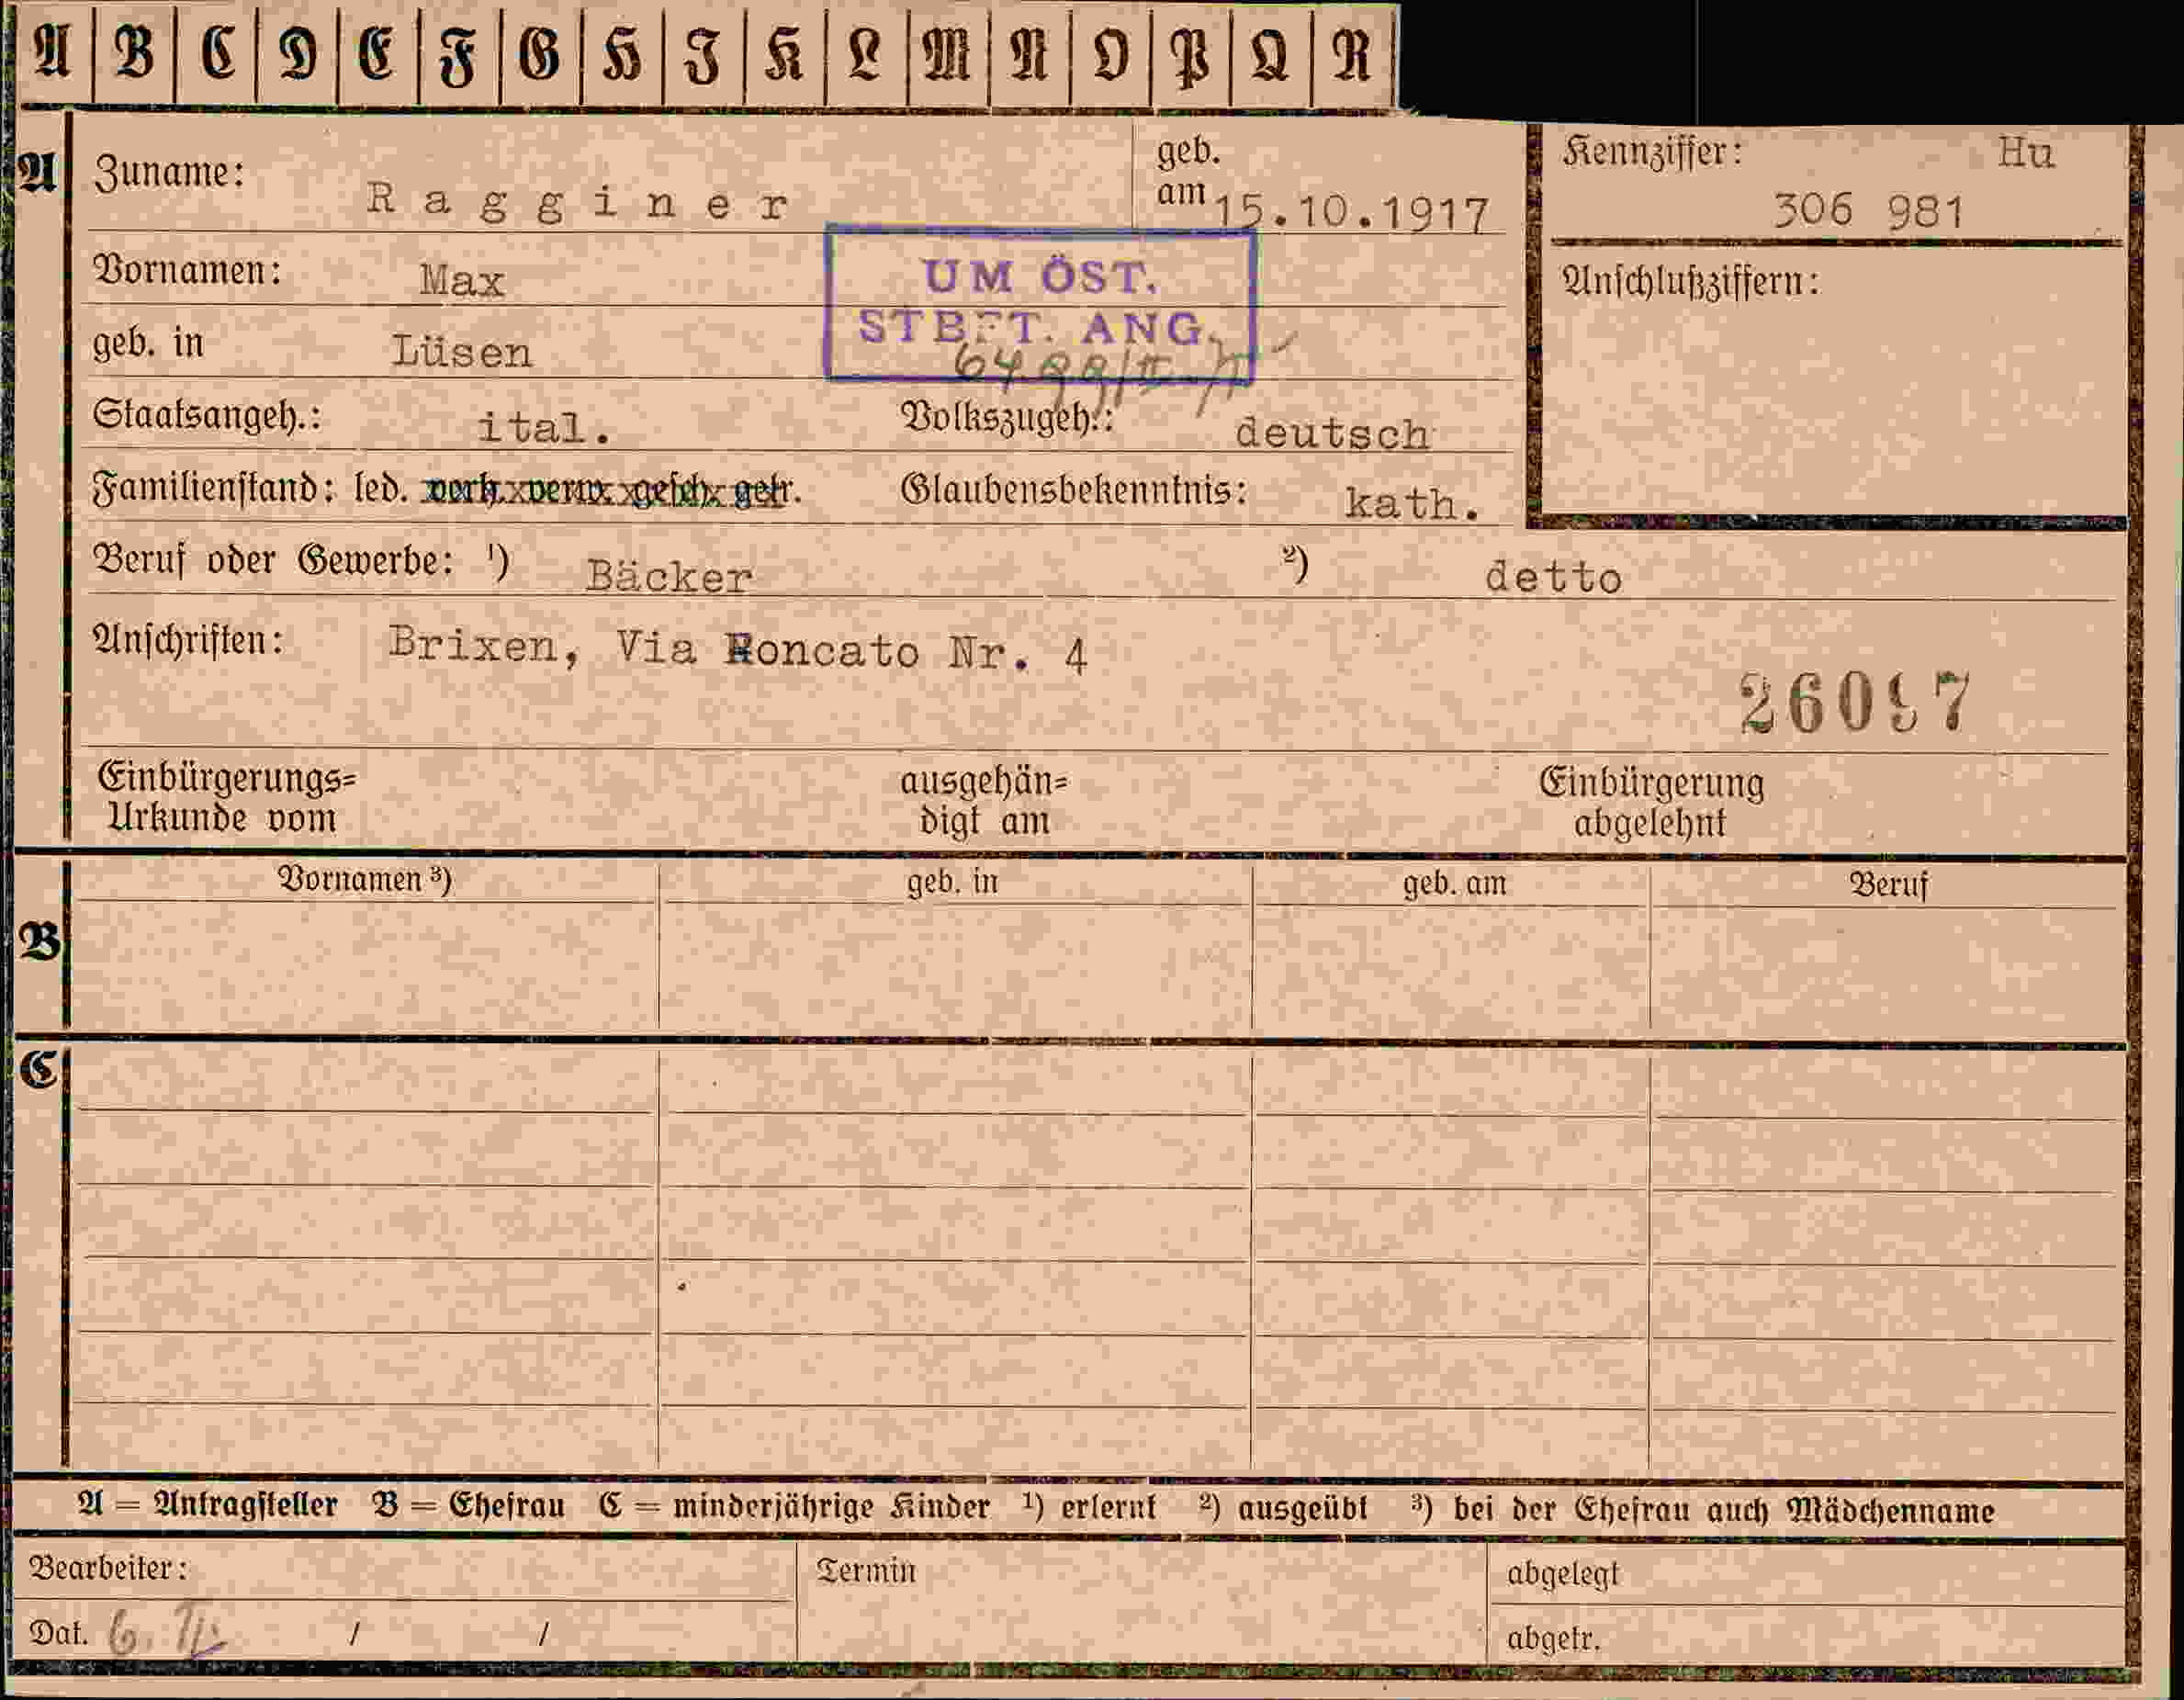 A B C D E F G H I K L M N O P Q R
A Zuname: Ragginer geb. am 15.10.1917 Kennziffer: Hu
306 981
Vornamen: Max UM ÖST. Anschlußziffern:
geb. in Lüsen STBFT. ANG.
Staatsangeh.: ital. Volkszugeh.: deutsch
Familienstand: led. verh. verw. gesch. getr. Glaubensbekenntnis: kath.
Beruf oder Gewerbe: ¹) Bäcker ²) detto
Anschriften: Brixen, Via Roncato Nr. 4
26097
Einbürgerungs= ausgehän= Einbürgerung
Urkunde vom digt am abgelehnt
Vornamen ³) geb. in geb. am Beruf
B
C
A = Antragsteller B = Ehefrau C = minderjährige Kinder ¹) erlernt ²) ausgeübt ³) bei der Ehefrau auch Mädchenname
Bearbeiter: Termin abgelegt
Dat. 6. / / abgetr.